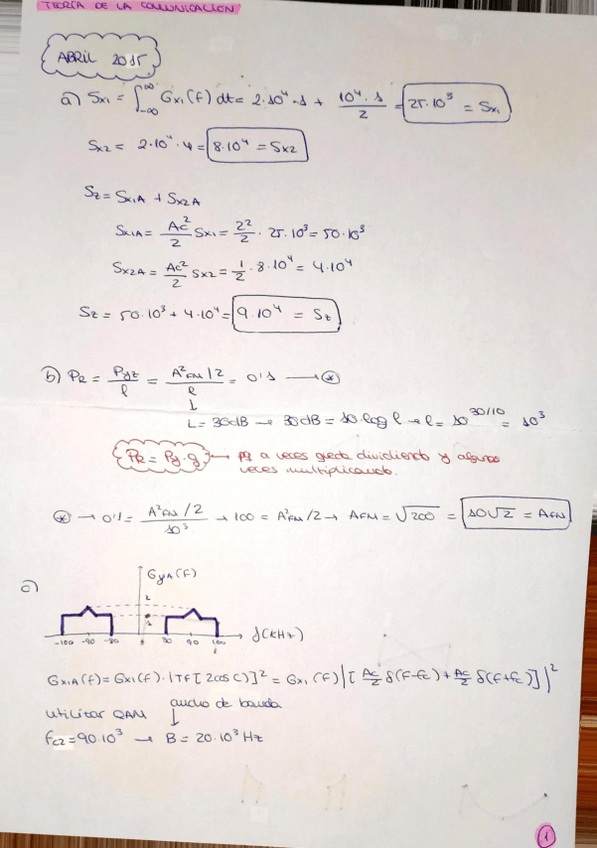 TEORÍA DE LA COMUNICACIÓN
ABRIL 2015
a) Sx1 = ∫_{-∞}^{∞} Gx1(f) dt = 2·10^4·1 + (10^4·1)/2 = 25·10^3 = Sx1
Sx2 = 2·10^4·4 = 8·10^4 = Sx2
Sz = Sx1A + Sx2A
Sx1A = Ac^2/2 Sx1 = 2^2/2 · 25·10^3 = 50·10^3
Sx2A = Ac^2/2 Sx2 = 1/2 · 8·10^4 = 4·10^4
Sz = 50·10^3 + 4·10^4 = 9·10^4 = Sz
b) PR = Pyz/l = (A^2FM/2)/l = 0'1 → *
L = 30dB → 30dB = 10·log l → l = 10^{30/10} = 10^3
PR = Py·g → PR a veces queda dividiendo y algunas
veces multiplicando.
* → 0'1 = (A^2FM/2)/10^3 → 100 = A^2FM/2 → AFM = √200 = 10√2 = AFM
c)
GyA(f)
2
1
-100 -90 -80 80 90 100 f(kHz)
Gx1A(f) = Gx1(f)·|TF[2cos()]^2 = Gx1(f)|[Ac/2 δ(f-fc) + Ac/2 δ(f+fc)]|^2
utilizar QAM ancho de banda
fc2 = 90·10^3 → B = 20·10^3 Hz
1